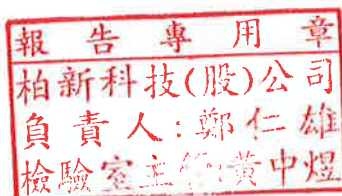 報告專用章
柏新科技(股)公司
負責人:鄭仁雄
檢驗室主任:黃中煜